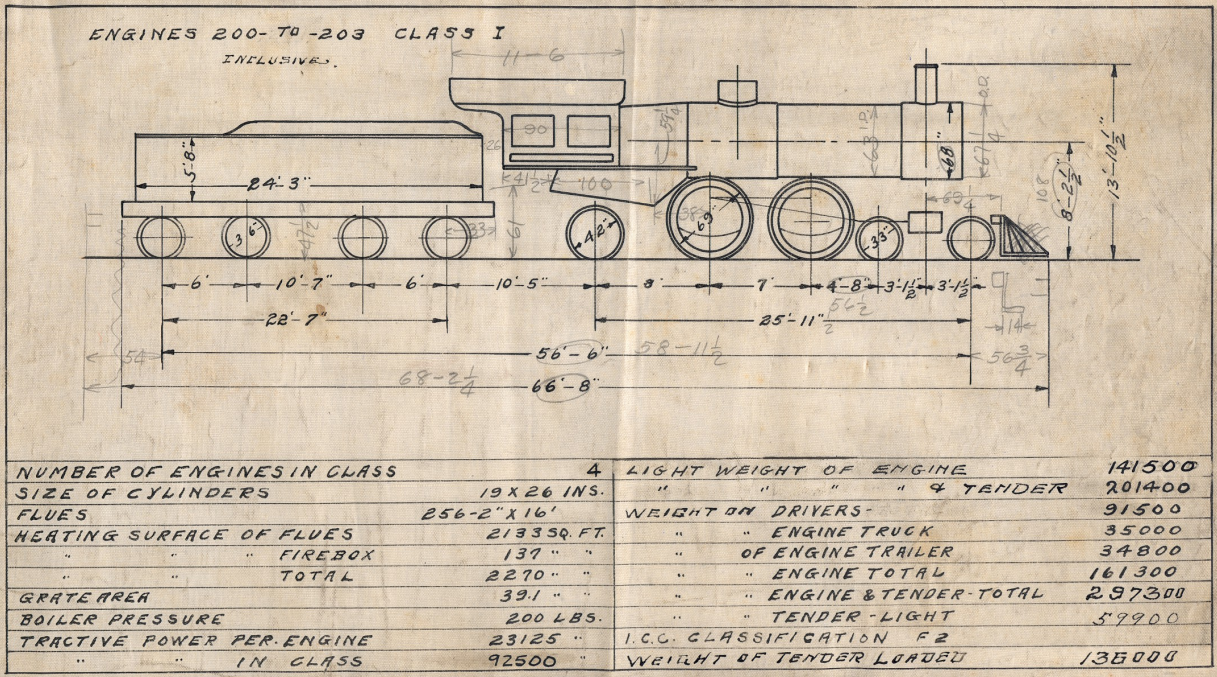 ENGINES 200-TO-203 CLASS I
INCLUSIVE.
11-6
90
26
59¼
63 I.D.
68"
67¼ O.D.
5'-8"
24'-3"
41½
100
69¼
108
8'-2½"
13'-10½"
3'6"
47½
33
61
42"
38
69"
33"
6' 10'-7" 6' 10'-5" 8' 7' 4'-8" 3'-1½" 3'-1½"
56½
22'-7" 25'-11" ½
14
54 56'-6" 58-11½ 56¾
68-2¼ 66'-8"
NUMBER OF ENGINES IN CLASS 4
SIZE OF CYLINDERS 19 X 26 INS.
FLUES 256-2" X 16'
HEATING SURFACE OF FLUES 2133 SQ. FT.
" " " FIREBOX 137 " "
" " TOTAL 2270 " "
GRATE AREA 39.1 " "
BOILER PRESSURE 200 LBS.
TRACTIVE POWER PER. ENGINE 23125 "
" " IN CLASS 92500 "
LIGHT WEIGHT OF ENGINE 141500
" " " " & TENDER 201400
WEIGHT ON DRIVERS- 91500
" " ENGINE TRUCK 35000
" OF ENGINE TRAILER 34800
" " ENGINE TOTAL 161300
" " ENGINE & TENDER-TOTAL 297300
" " TENDER-LIGHT 59900
I.C.C. CLASSIFICATION F2
WEIGHT OF TENDER LOADED 136000